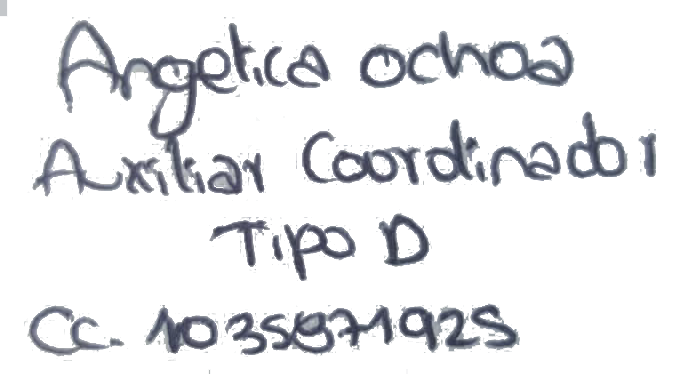 Angelica ochoa
Auxiliar Coordinador
Tipo D
CC. 1035871925